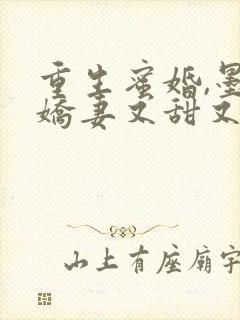 重生蜜婚,墨
娇妻又甜又
山上有座廟宇